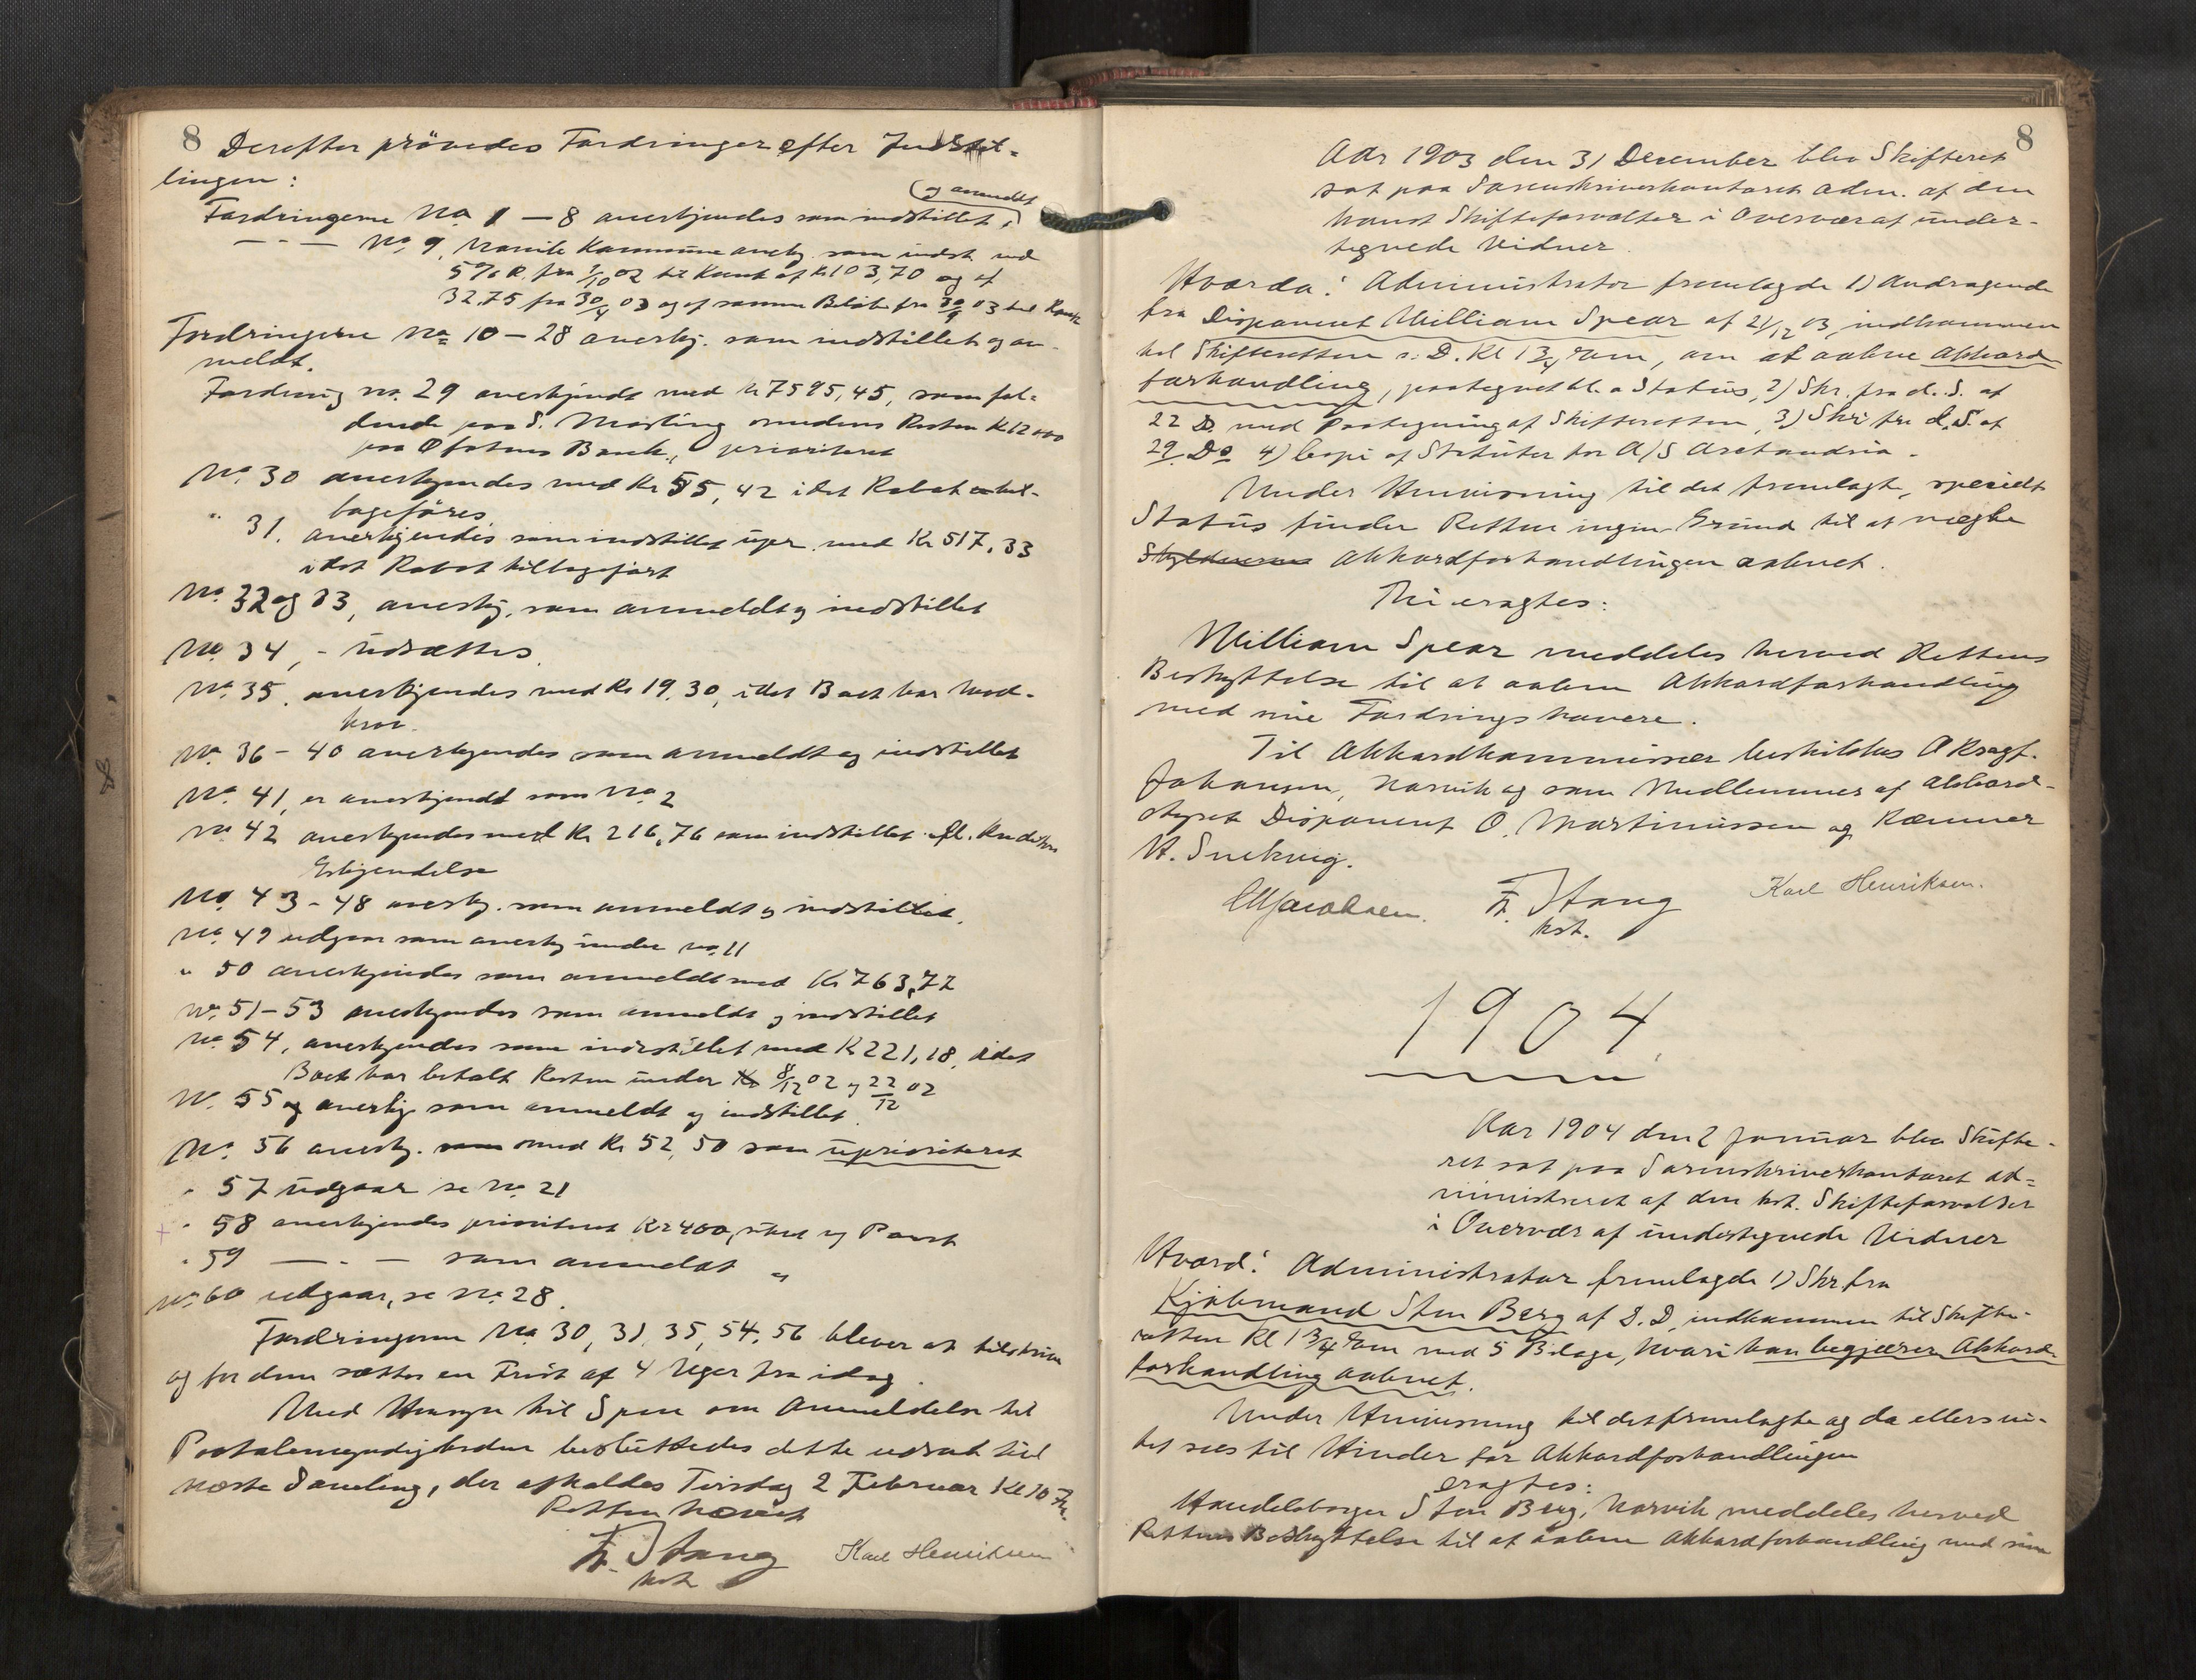 8 Derefter prövedes Fordringer efter Indstil-
lingen:
og anmeldt
Fordringerne No 1 – 8 anerkjendes som indstillet.
— " — No 9, Narvik Kommune anerkj. som indst. med
5% R. fra 1/10 02 til Konk. af Kr 103,70 og af
32,75 fra 30/4 03 og af samme Beløb fra 30/9 03 til Konk.
Fordringerne No 10 – 28 anerkj. som indstillet og an-
meldt.
Fordring no. 29 anerkjendt med Kr 7595,45, som fal-
dende paa S. Mosling, medens Resten Kr 12000
paa Ofotens Bank, prioriteret
No. 30 anerkjendes med Kr 55,42 idet Rabat til-
bageføres
" 31. anerkjendes som indstillet upr. med Kr 517,33
idet Rabat tilbageført
No. 32 og 33, anerkj. som anmeldt og indstillet
No. 34, - udsættes.
No. 35. anerkjendes med Kr 19.30, idet Boet har Mod-
krav.
No. 36 – 40 anerkjendes som anmeldt og indstillet
No. 41, er anerkjendt som No. 2
No. 42 anerkjendes med Kr 216,76 som indstillet
Erkjendelse
No. 43 – 48 anerkj. som anmeldt og indstillet.
No. 49 udgaar som anerkj under no. 11
" 50 anerkjendes som anmeldt med Kr 763,77
No. 51 – 53 anerkjendes som anmeldt og indstillet
No. 54, anerkjendes som indstillet med Kr 221,18, idet
Boet har betalt Resten under 8/12 02 og 22/12 02
No. 55 anerkj. som anmeldt og indstillet.
No. 56 anerkj. som med Kr 52,50 som uprioriteret
" 57 udgaar se No. 21
" 58 anerkjendes prioriteret Kr 400, uden Pant
" 59 — " — som anmeldt "
No. 60 udgaar, se no. 28.
Fordringerne No. 30, 31, 35, 54, 56 bliver at tilskrive
og for dem sættes en Frist af 4 Uger fra idag.
Med Hensyn til Spm om Anmeldelse til
Paatalemyndigheden besluttedes dette udsat til
næste Samling, der afholdes Tirsdag 2 Februar Kl 10 Fm.
Retten hævet
F. Stang
kst
Karl Henriksen
8
Aar 1903 den 31 December blev Skifteret
sat paa Sorenskriverkontoret adm. af den
konst Skifteforvalter i Overvær af under-
tegnede Vidner.
Hvorda: Administrator fremlagde 1) Andragende
fra Disponent William Spear af 21/12 03, indkommen
til Skifteretten s. D. Kl 1 3/4 Em, om at aabne Akkord-
forhandling, paategnet bl. a Status, 2) Skr. fra d. S. af
22 D. med Paategning af Skifteretten, 3) Skr fra d. S. af
29. Do 4) Copi af Statuter for A/S
Under Henvisning til det fremlagte, specielt
Status finder Retten ingen Grund til at nægte
Skyldneren Akkordforhandlingen aabnet.
Thi eragtes:
William Spear meddeles herved Rettens
Beskyttelse til at aabne Akkordforhandling
med sine Fordringshavere.
Til Akkordkommissær beskikkes O Rsagf.
Johansen, Narvik og som Medlemmer af Akkord-
styret Disponent O. Martinussen og Kæmner
H. Snekvig.
Jacobsen. F. Stang Karl Henriksen.
kst.
1904.
Aar 1904 den 2 Januar blev Skifte-
ret sat paa Sorenskriverkontoret ad-
ministreret af den kst. Skifteforvalter
i Overvær af undertegnede Vidner
Hvord: Administrator fremlagde 1) Skr. fra
Kjøbmand Sten Berg af D. D, indkommen til Skifte-
retten Kl 1 3/4 Em med 5 Bilage, hvori han begjærer Akkord-
forhandling aabnet.
Under Henvisning til det fremlagte og da ellers in-
tet sees til Hinder for Akkordforhandlingen
eragtes:
Handelsborger Sten Berg, Narvik meddeles herved
Rettens Beskyttelse til at aabne Akkordforhandling med sine